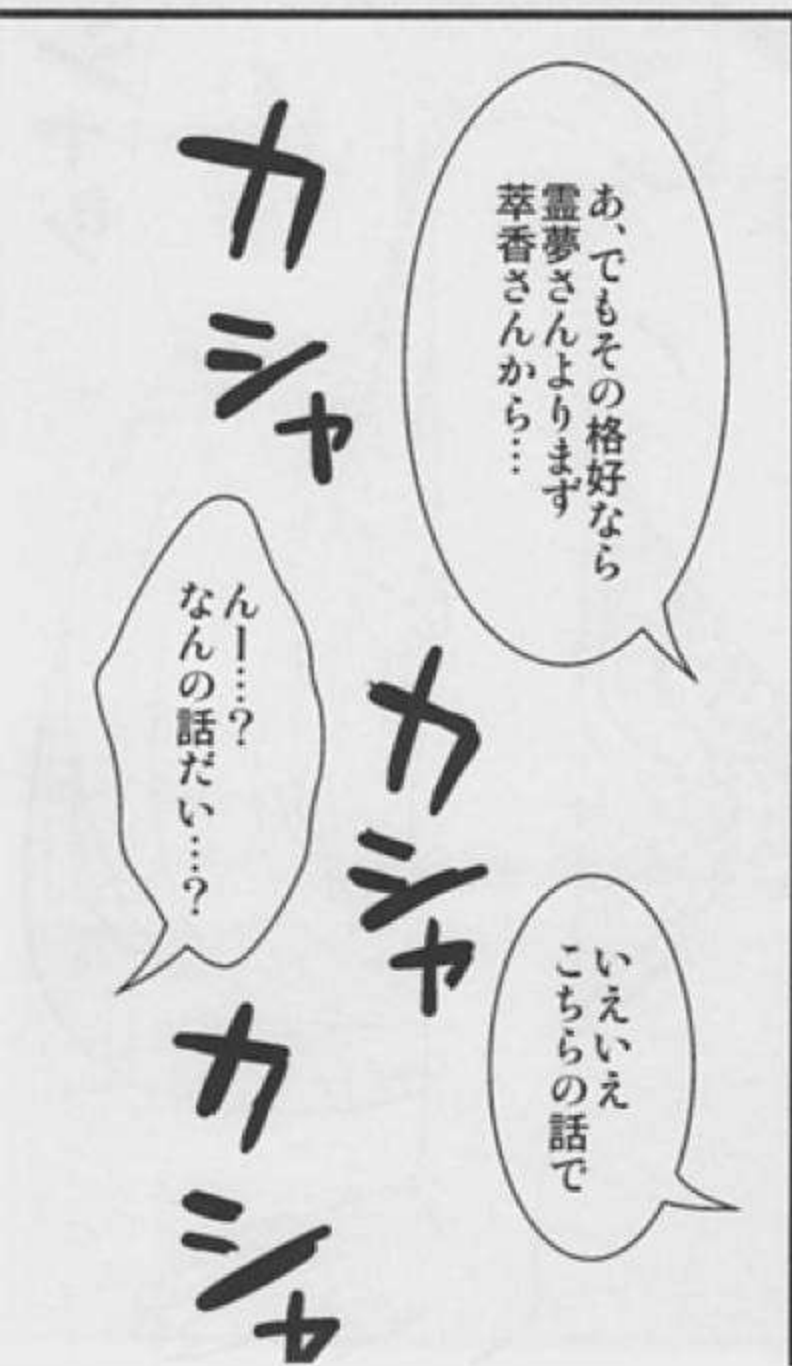 あ、でもその格好なら
霊夢さんよりまず
萃香さんから…
カシャ
んー…?
なんの話だい…?
カシャ
いえいえ
こちらの話で
カシャ